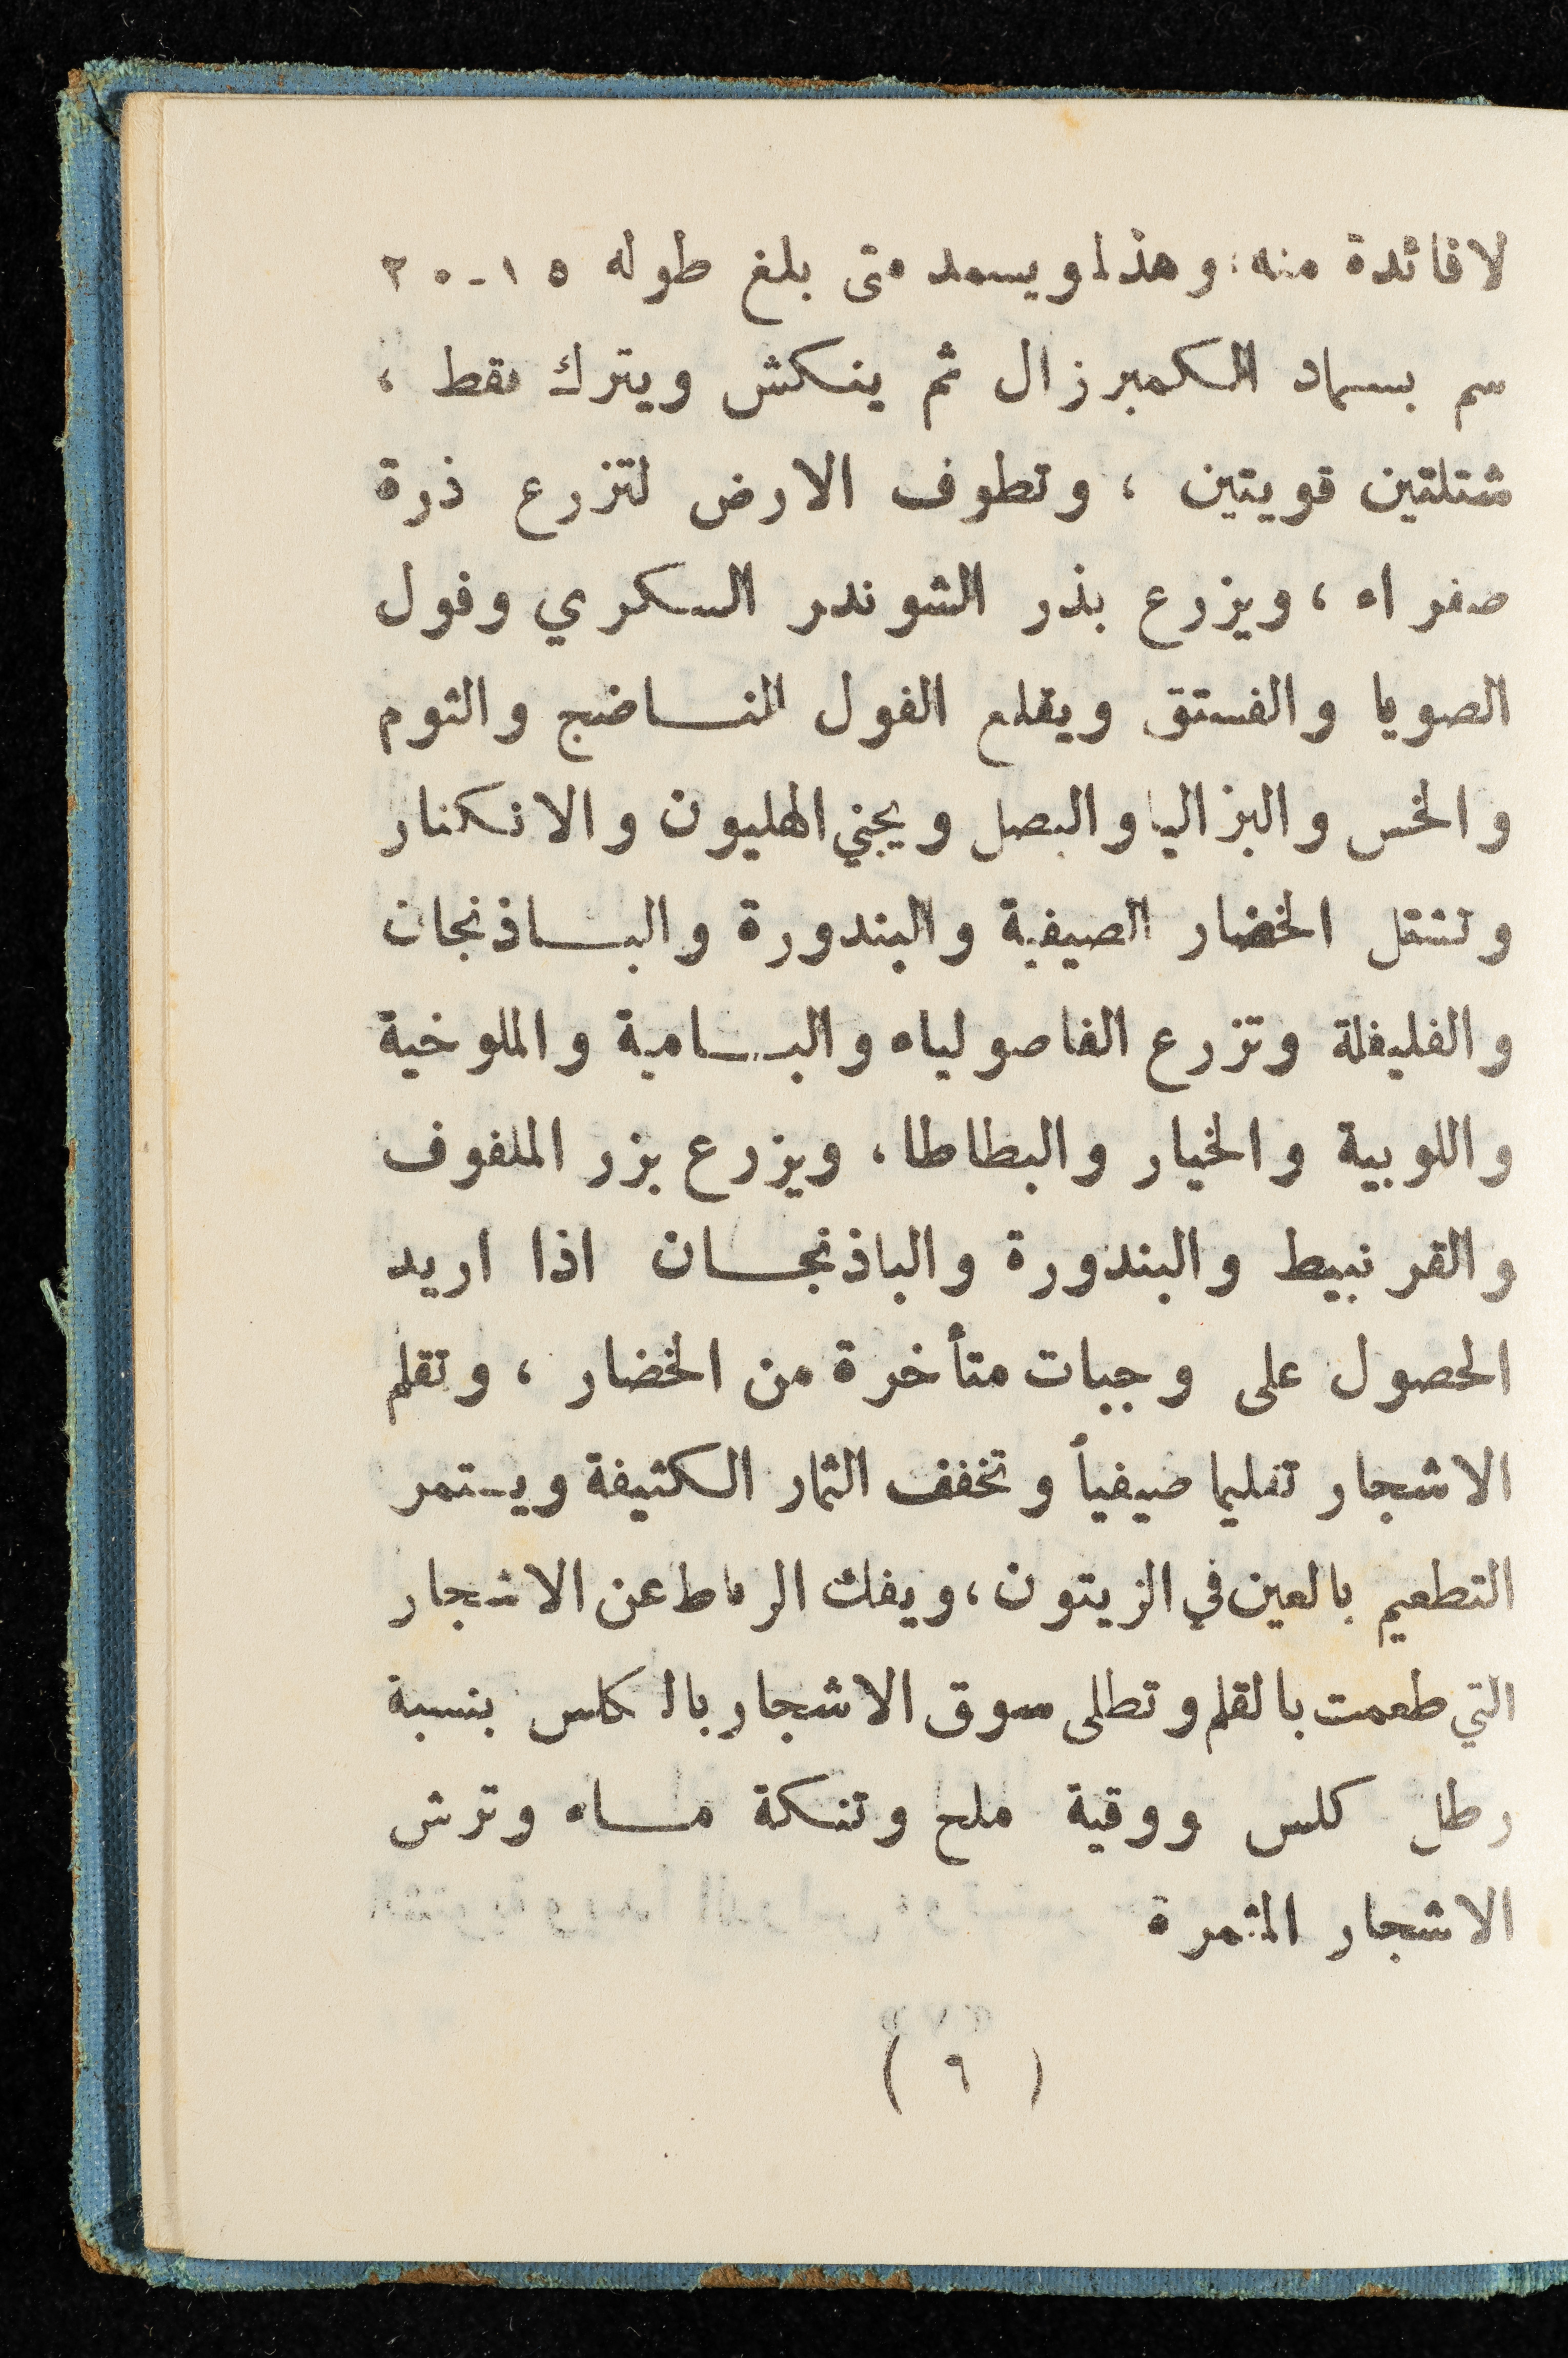 لا فائدة منه، وهذا ويسمد متى بلغ طوله ١٥-٢٠
سم بسماد الكمبرزال ثم ينكش ويترك فقط ،
شتلتين قويتين ، وتطوف الارض لتزرع ذرة
صفراء ، ويزرع بذر الشوندر السكري وفول
الصويا والفستق ويقلع الفول الناضج والثوم
والخس والبزاليا والبصل ويجني الهليون والانكنار
وتشتل الخضار الصيفية والبندورة والباذنجان
والفليفلة وتزرع الفاصولياء والبامية والملوخية
واللوبية والخيار والبطاطا ، ويزرع بزر الملفوف
والقرنبيط والبندورة والباذنجان اذا اريد
الحصول على وجبات متأخرة من الخضار ، وتقلم
الاشجار تقليما صيفياً وتخفف الثمار الكثيفة ويستمر
التطعيم بالعين في الزيتون ، ويفك الرباط عن الاشجار
التي طعمت بالقلم وتطلى سوق الاشجار بالكلس بنسبة
رطل كلس ووقية ملح وتنكة ماء وترش
الاشجار المثمرة
( ٦ )